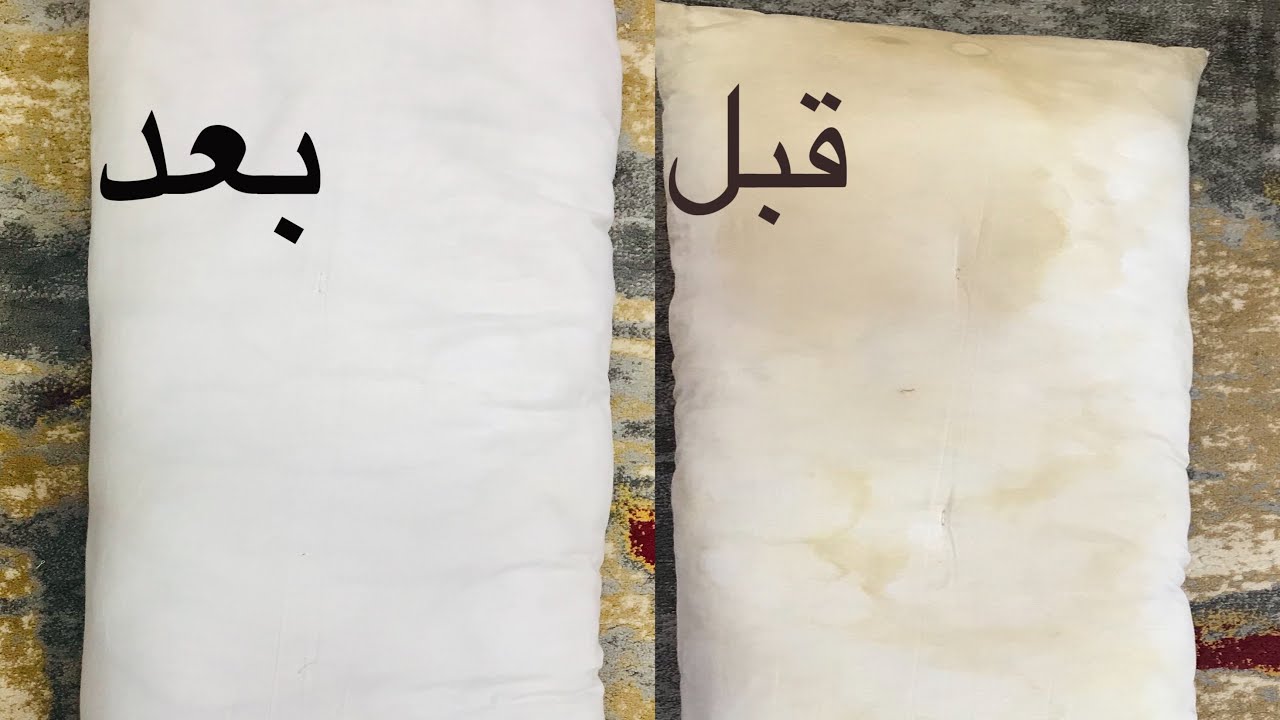 قبل
بعد